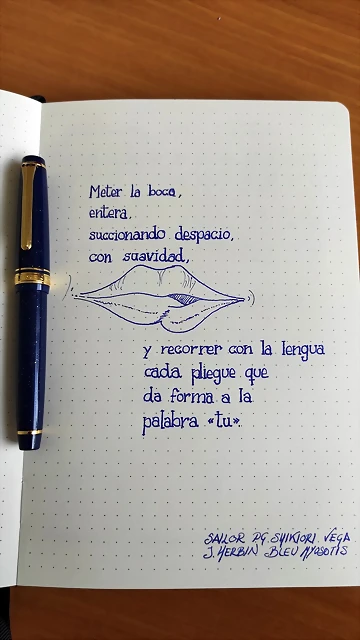 Meter la boca,
entera,
succionando despacio,
con suavidad,
y recorrer con la lengua
cada pliegue que
da forma a la
palabra «tu».
SAILOR PG. SHIKIORI. VEGA
J. HERBIN BLEU MYOSOTIS